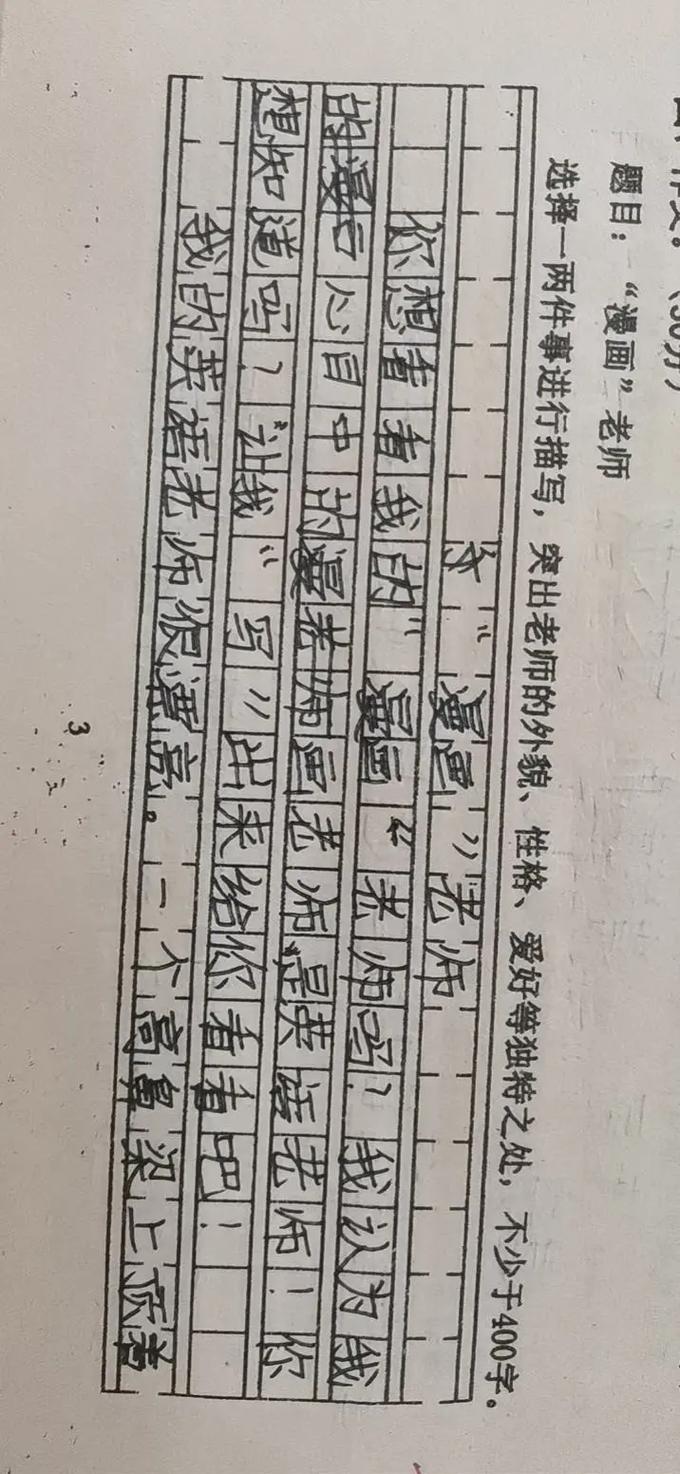 题目：“漫画”老师
选择一两件事进行描写，突出老师的外貌、性格、爱好等独特之处，不少于400字。
“漫画”老师
你想看看我的“漫画“老师吗？我认为我
的漫 心目中的漫老师画老师是英语老师！你
想知道吗？让我“写”出来给你看看吧！
我的英语老师很漂亮。一个高鼻梁上顶着
3